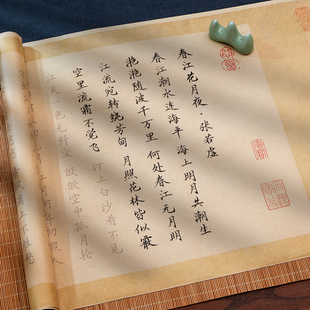 春江花月夜·张若虚
春江潮水连海平 海上明月共潮生
滟滟随波千万里 何处春江无月明
江流宛转绕芳甸 月照花林皆似霰
空里流霜不觉飞 汀上白沙看不见
江天一色无纤尘 皎皎空中孤月轮